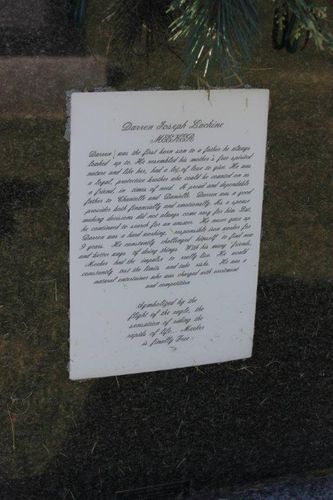 Darren Joseph Lachine
MEEKER
Darren was the first born son to a father he always
looked up to. He resembled his mother's free spirited
nature and like her, had a lot of love to give. He was
a loyal, protective brother who could be counted on as
a friend, in times of need. A proud and dependable
father to Chancelle and Danielle. Darren was a good
provider both financially and emotionally. As a spouse
making decisions did not always come easy for him. But,
he continued to search for an answer. He never gave up
Darren was a hard working, responsible iron worker for
9 years. He constantly challenged himself to find new
and better ways of doing things. With his many friends,
Meeker had the impulse to really live. He would
constantly test the limits and take risks. He was a
natural entertainer who was charged with excitement
and competition
Symbolized by the
flight of the eagle, the
sensation of riding the
rapids of life, Meeker
is finally Free